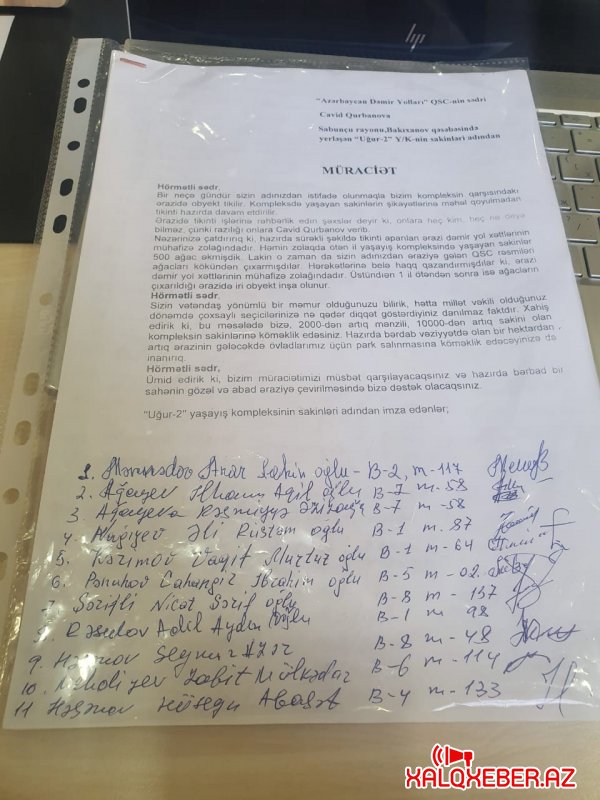 hp
"Azərbaycan Dəmir Yolları" QSC-nin sədri
Cavid Qurbanova
Sabunçu rayonu,Bakıxanov qəsəbəsində
yerləşən "Uğur-2" Y/K-nin sakinləri adından
MÜRACİƏT
Hörmətli sədr,
Bir neçə gündür sizin adınızdan istifadə olunmaqla bizim kompleksin qarşısındakı
ərazidə obyekt tikilir. Kompleksdə yaşayan sakinlərin şikayətlərinə məhəl qoyulmadan
tikinti hazırda davam etdirilir.
Ərazidə tikinti işlərinə rəhbərlik edən şəxslər deyir ki, onlara heç kim, heç nə deyə
bilməz, çünki razılığı onlara Cavid Qurbanov verib.
Nəzərinizə çatdırırıq ki, hazırda sürəkli şəkildə tikinti aparılan ərazi dəmir yol xəttlərinin
mühafizə zolağındadır. Həmin zolaqda ötən il yaşayış kompleksində yaşayan sakinlər
500 ağac əkmişdik. Lakin o zaman da sizin adınızdan əraziyə gələn QSC rəsmiləri
ağacları kökündən çıxarmışdılar. Hərəkətlərinə belə haqq qazandırmışdılar ki, ərazi
dəmir yol xəttlərinin mühafizə zolağındadır. Üstündən 1 il ötəndən sonra isə ağacların
çıxarıldığı ərazidə iri obyekt inşa olunur.
Hörmətli sədr,
Sizin vətəndaş yönümlü bir məmur olduğunuzu bilirik, hətta millət vəkili olduğunuz
dönəmdə çoxsaylı seçicilərinizə nə qədər diqqət göstərdiyiniz danılmaz faktdır. Xahiş
edirik ki, bu məsələdə bizə, 2000-dən artıq mənzili, 10000-dən artıq sakini olan
kompleksin sakinlərinə köməklik edəsiniz. Hazırda bərbad vəziyyətdə olan bir hektardan
artıq ərazinin gələcəkdə övladlarımız üçün park salınmasına köməklik edəcəyinizə də
inanırıq.
Hörmətli sədr,
Ümid edirik ki, bizim müraciətimizi müsbət qarşılayacaqsınız və hazırda bərbad bir
sahənin gözəl və abad əraziyə çevrilməsində bizə dəstək olacaqsınız.
"Uğur-2" yaşayış kompleksinin sakinləri adından imza edənlər;
1. Məmmədov Anar oğlu - B-2, m-117
2. Ağayev İlham Aqil oğlu B-7 m-58
3. Ağayeva B-7 m-58
4. Əli Rüstəm oğlu B-1 m. 87
5. Kərimov Vaqif oğlu B-1 m-64
6. Cahangir İbrahim oğlu B-5 m-02.
7. Şərifli Nicat Şərif oğlu B-8 m-137
8. Rəsulov Adil Aydın oğlu B-1 m 98
9. B-8 m-48
10. Mehdiyev Zabit Mülkədar B-6 m-114
11 B-4 m-133
XALQXEBER.AZ